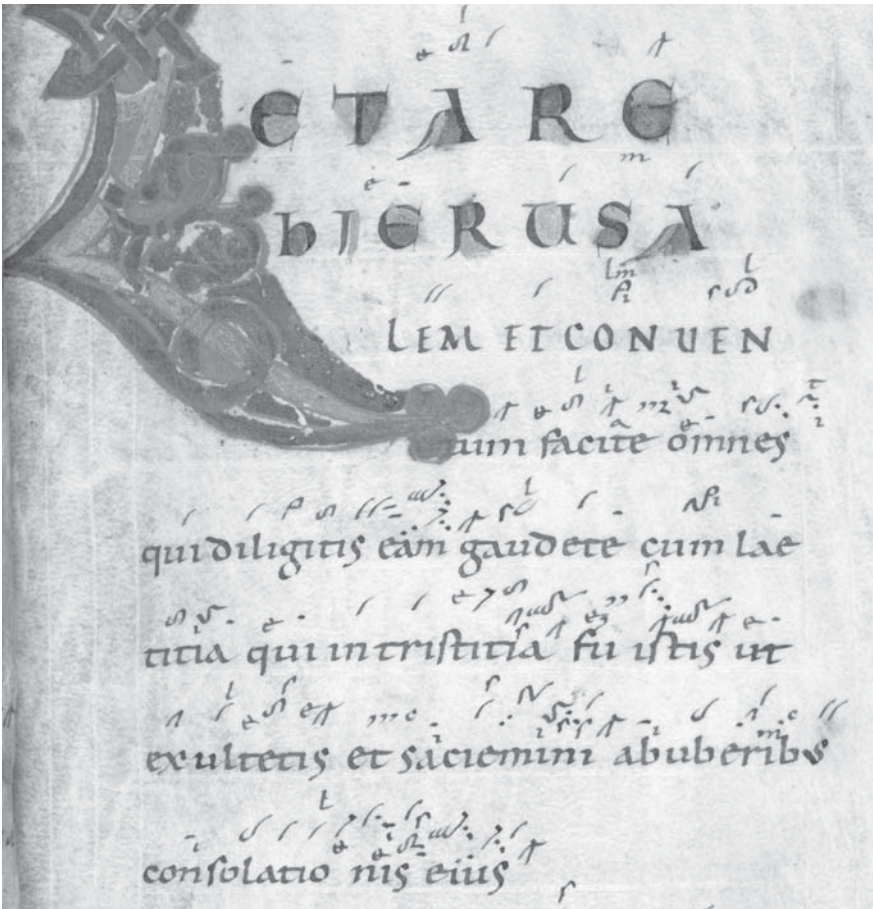 LETARE
hIERUSA
LEM ET CONUEN
tum facite omnes
qui diligitis eam gaudete cum lae
titia qui in tristitia fuistis ut
exultetis et saciemini ab uberibus
consolationis eius